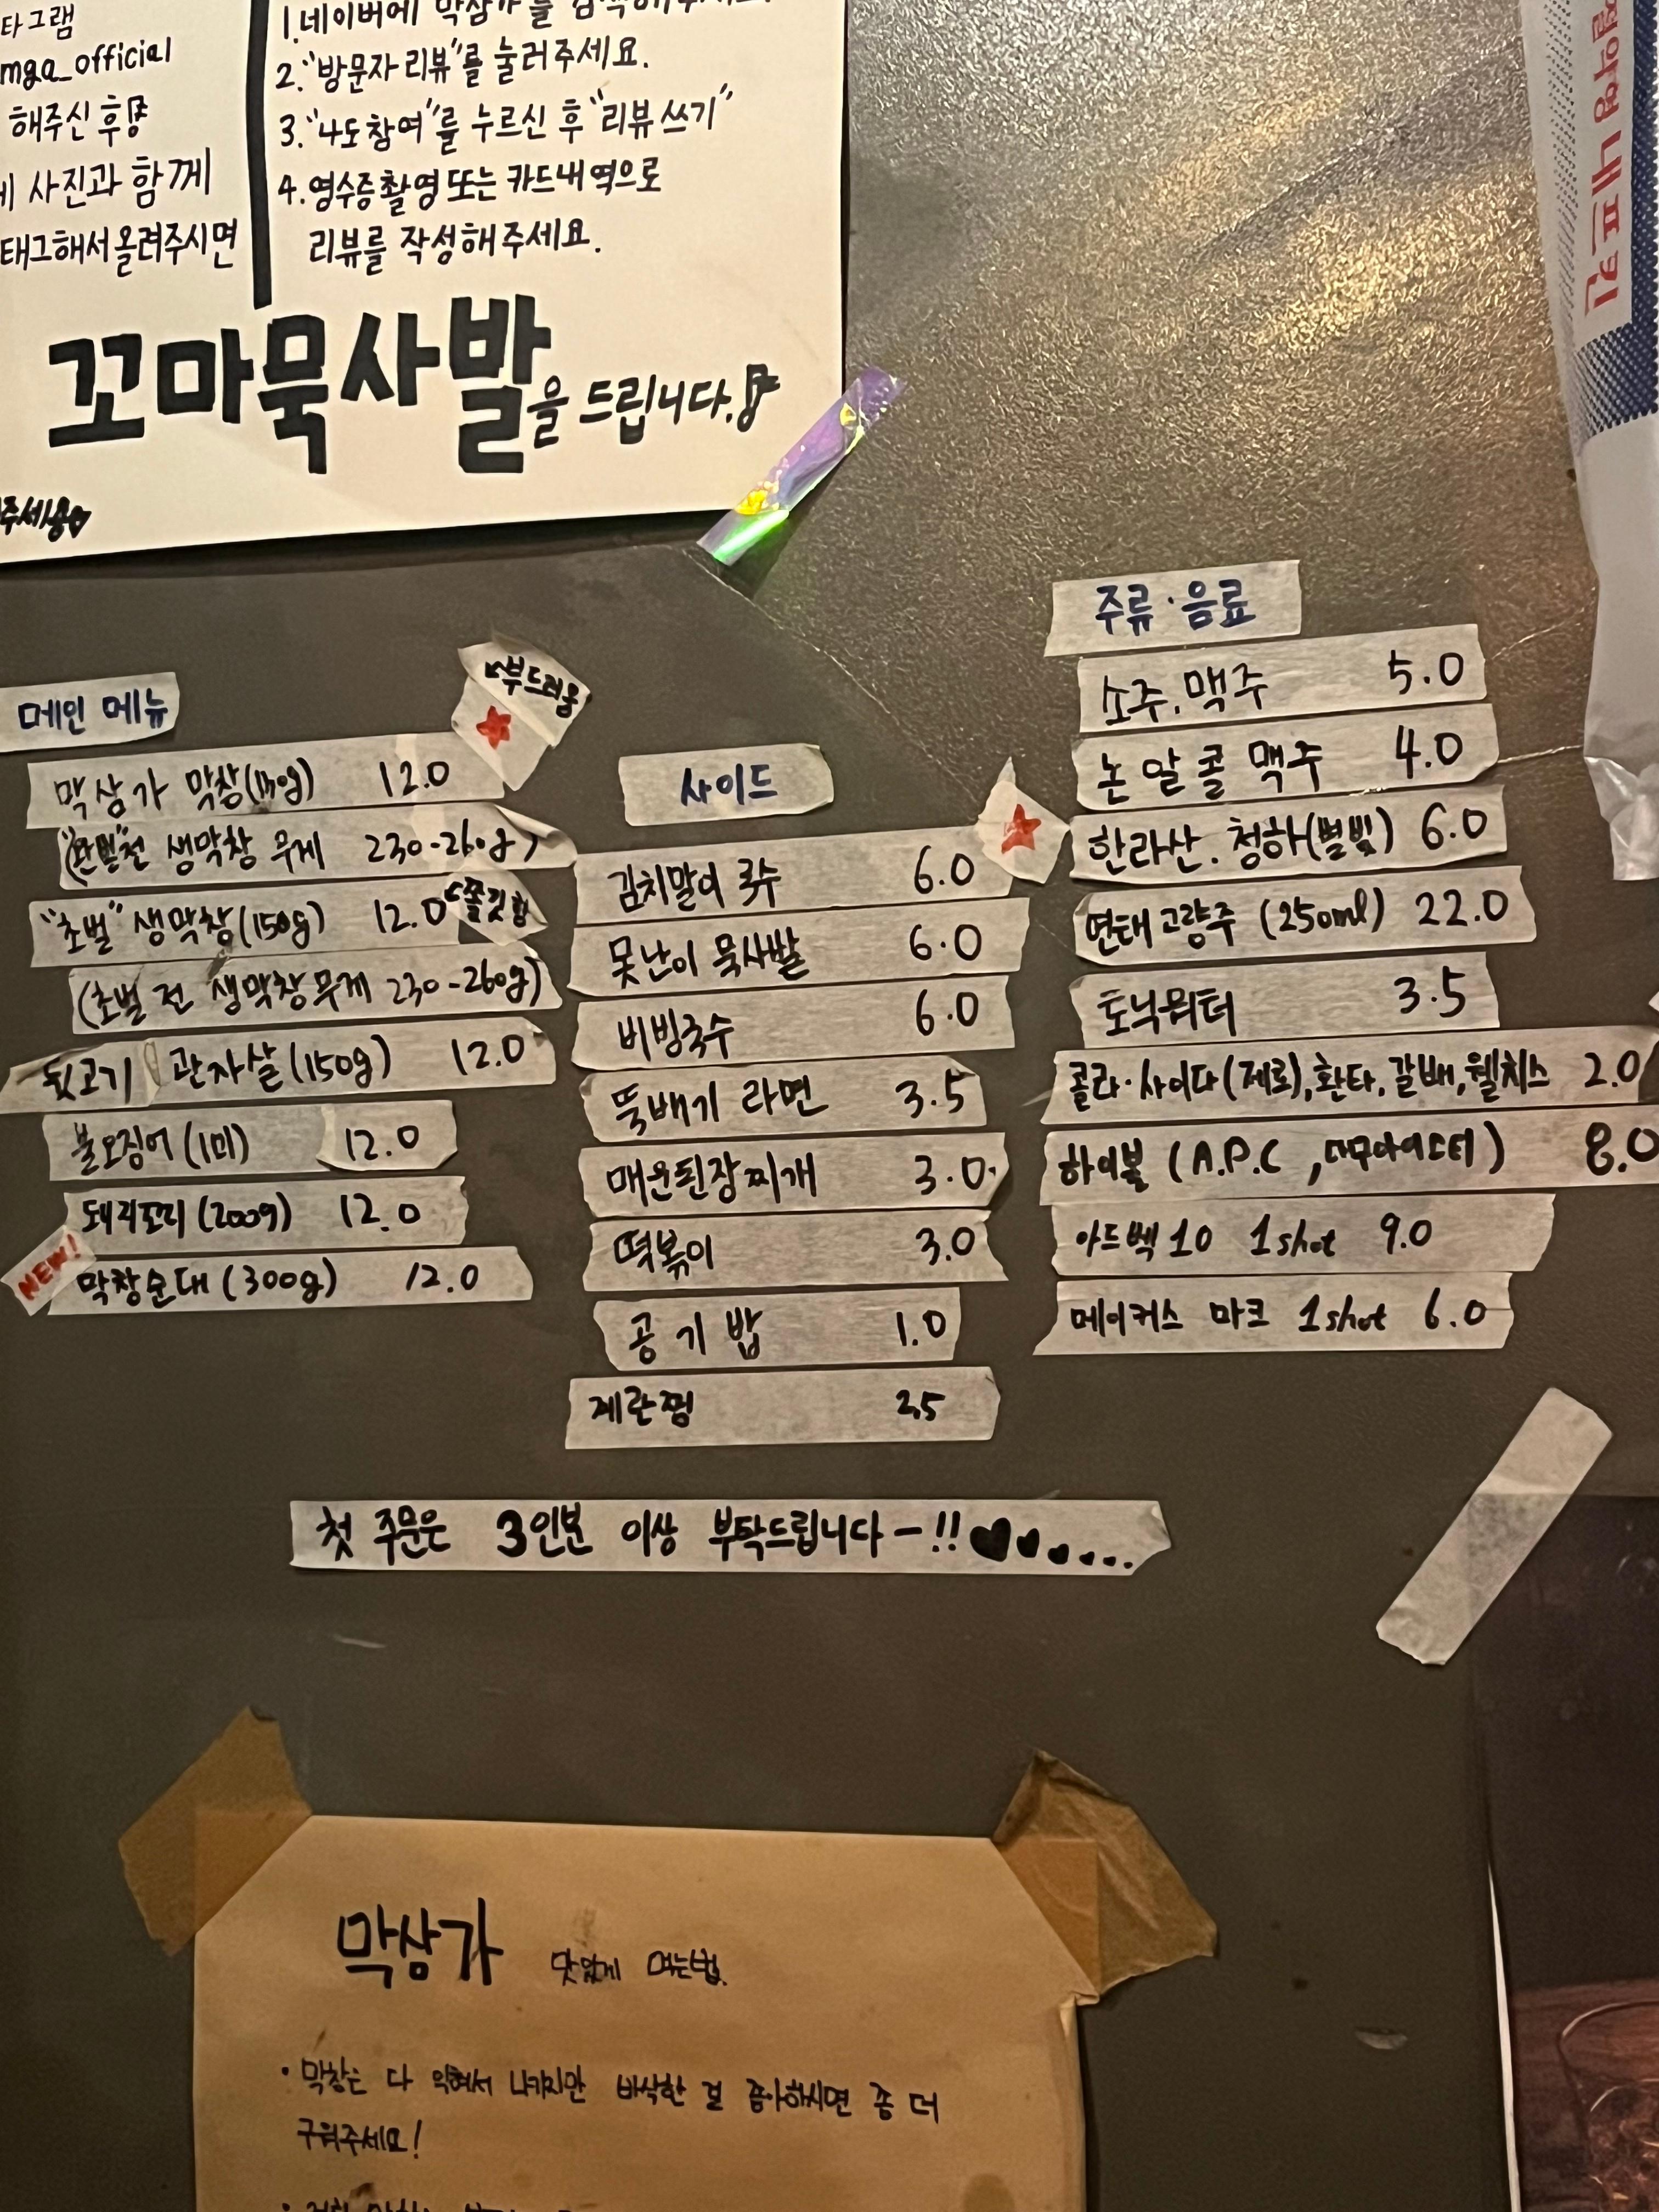 타그램
mga_official
해주신 후
사진과 함께
태그해서 올려주시면
1. 네이버에 막삼가를 검색해주세요.
2. "방문자 리뷰"를 눌러주세요.
3. "나도참여"를 누르신 후 "리뷰 쓰기"
4. 영수증촬영 또는 카드내역으로
리뷰를 작성해주세요.
꼬마묵사발을 드립니다.
주세용♥
냅킨
메인 메뉴
↙부드러움
막삼가 막창 12.0
전 생막창 무게 230-260g)
"초벌" 생막창(150g) 12.0
↙쫄깃함
(초벌 전 생막창무게 230-260g)
뒷고기 관자살(150g) 12.0
불오징어(1미) 12.0
돼지꼬리(200g) 12.0
NEW!
막창순대(300g) 12.0
사이드
김치말이 국수 6.0
못난이 묵사발 6.0
비빔국수 6.0
뚝배기 라면 3.5
매운된장찌개 3.0
떡볶이 3.0
공기밥 1.0
계란찜
주류·음료
소주. 맥주 5.0
논알콜 맥주 4.0
한라산. 청하(별빛) 6.0
연태고량주 (250ml) 22.0
토닉워터 3.5
콜라·사이다(제로), 환타, 갈배, 웰치스 2.0
하이볼 (A.P.C ,) 8.0
아드벡 10 1shot 9.0
메이커스 마크 1shot 6.0
첫 주문은 3인분 이상 부탁드립니다-!!♥
막삼가 맛있게 먹는법.
· 막창은 다 익혀서 나가지만 바삭한 걸 좋아하시면 좀 더
구워주세요!